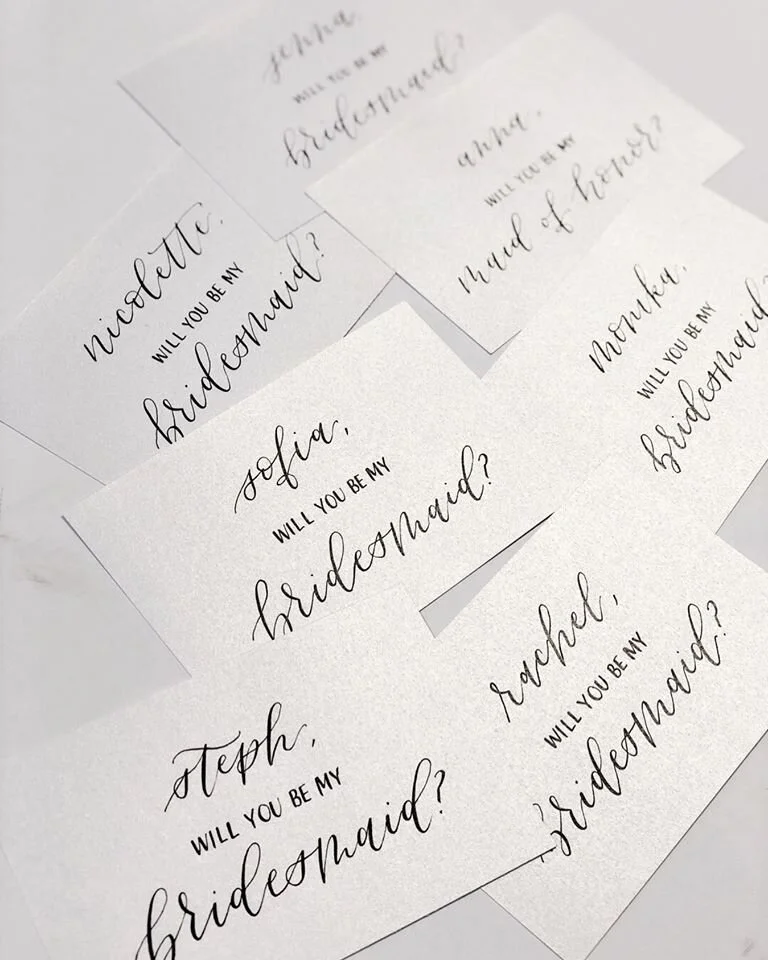 jenna,
WILL YOU BE MY
bridesmaid?
anna,
WILL YOU BE MY
maid of honor?
nicolette,
WILL YOU BE MY
bridesmaid?
monika,
WILL YOU BE MY
bridesmaid?
sofia,
WILL YOU BE MY
bridesmaid?
rachel,
WILL YOU BE MY
bridesmaid?
steph,
WILL YOU BE MY
bridesmaid?